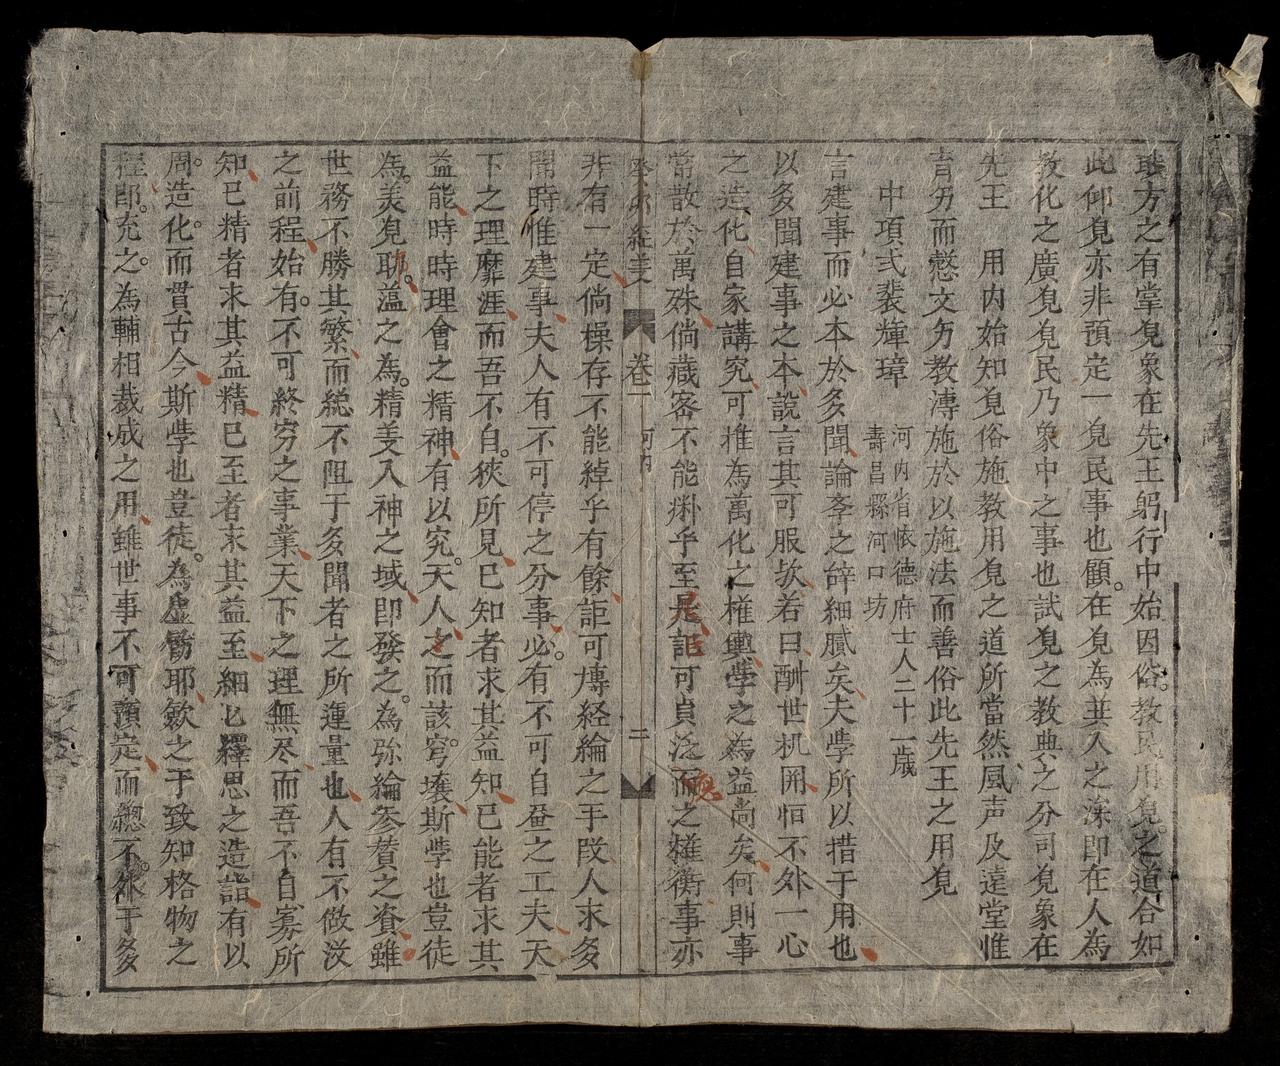 方之有掌覓象在先王躬行中始因俗教民用覓之道合如
此仰覓亦非預定一覓民事也顧在覓為其入之深即在人為
教化之廣覓覓民乃象中之事也試覓之教典之分司覓象在
先王 用内始知覓俗施教用覓之道所當然風声及遠堂惟
育方而憖文方教溥施於以施法而善俗此先王之用覓
中項弍裴煇璋
河内省懷德府士人二十一歲
壽昌縣河口坊
言建事而必本於多聞論孝之辞細膩矣夫孝所以措于用也
以多聞建事之本說言其可服欤若曰酬世机開怕不外一心
之造化自家講究可推為萬化之權輿孝之為益尚矣何則事
常散於萬殊倘藏密不能捌乎至是詎可貞泛而之權衡事亦
癸卯経義 卷一 河内 二
非有一定倘操存不能綽乎有餘詎可慱経綸之手段人求多
聞時惟建事夫人有不可停之分事必有不可自畳之工夫天
下之理靡涯而吾不自狹所見已知者求其益知已能者求其
益能時時理會之精神有以究天人之而該穹壤斯孝也豈徒
為美覓耶薀之為精㕛入神之域即發之為弥綸参賛之資雖
世務不勝其繁而総不阻于多聞者之所運量也人有不做没
之前程始有不可終穷之事業天下之理無尽而吾不自寡所
知已精者求其益精已至者求其益至細心繹思之造詣有以
周造化而貫古今斯孝也豈徒為虛骛耶歛之于致知格物之
程即充之為輔相裁成之用雖世事不可預定而總不外于多